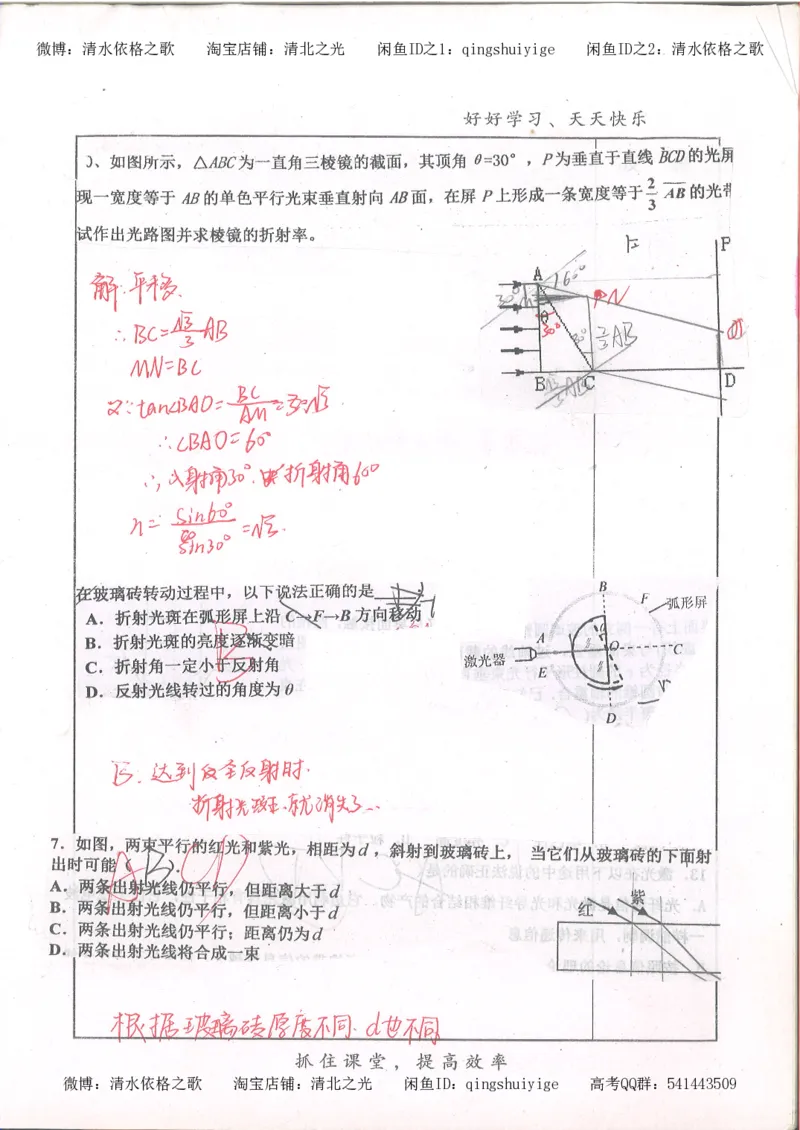 微博：清水依格之歌 淘宝店铺：清北之光 闲鱼ID之1：qingshuiyige 闲鱼ID之2：清水依格之歌
好好学习、天天快乐
)、如图所示，△ABC为一直角三棱镜的截面，其顶角θ=30°，P为垂直于直线BCD的光屏
现一宽度等于AB的单色平行光束垂直射向AB面，在屏P上形成一条宽度等于2/3 AB的光带
试作出光路图并求棱镜的折射率。
解:平移.
∴BC=√3/3 AB
MN=BC
又∵tan∠BAO=BC/AM=
∴∠BAO=60°
∴入射角30°.折射角60°
n=sin60°/sin30°=√3.
A 60° P
30° M N
θ 30° 30° 2/3 AB
B C D
√3/3 AB
在玻璃砖转动过程中，以下说法正确的是
A．折射光斑在弧形屏上沿C→F→B方向移动
B．折射光斑的亮度逐渐变暗
C．折射角一定小于反射角
D．反射光线转过的角度为θ
B
B
F 弧形屏
A O C
激光器
E
D
B.达到全反射时.
折射光斑.就消失了...
7．如图，两束平行的红光和紫光，相距为d，斜射到玻璃砖上， 当它们从玻璃砖的下面射
出时可能（ ）.
A．两条出射光线仍平行，但距离大于d
B．两条出射光线仍平行，但距离小于d
C．两条出射光线仍平行；距离仍为d
D．两条出射光线将合成一束
红 紫
根据玻璃砖厚度不同.d也不同
抓住课堂，提高效率
微博：清水依格之歌 淘宝店铺：清北之光 闲鱼ID：qingshuiyige 高考QQ群：541443509